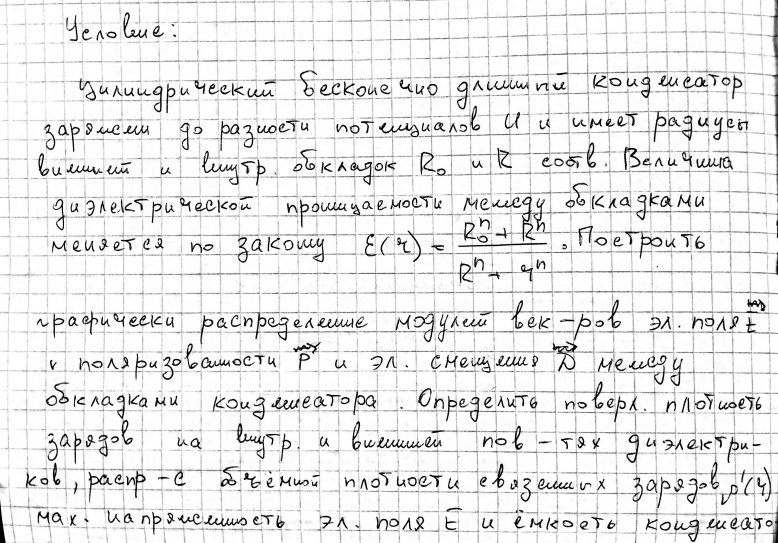 Условие:
Цилиндрический бесконечно длинный конденсатор
заряжен до разности потенциалов U и имеет радиусы
внешней и внутр. обкладок R₀ и R соотв. Величина
диэлектрической проницаемости между обкладками
меняется по закону ε(r) = (R₀ⁿ + Rⁿ)/(Rⁿ + rⁿ). Построить
графически распределение модулей век-ров эл. поля E
, поляризованности P и эл. смещения D между
обкладками конденсатора. Определить поверх. плотность
зарядов на внутр. и внешней пов-тях диэлектри-
ков, распр-е объёмной плотности связанных зарядов ρ'(r)
мах. напряженность эл. поля E и ёмкость конденсато